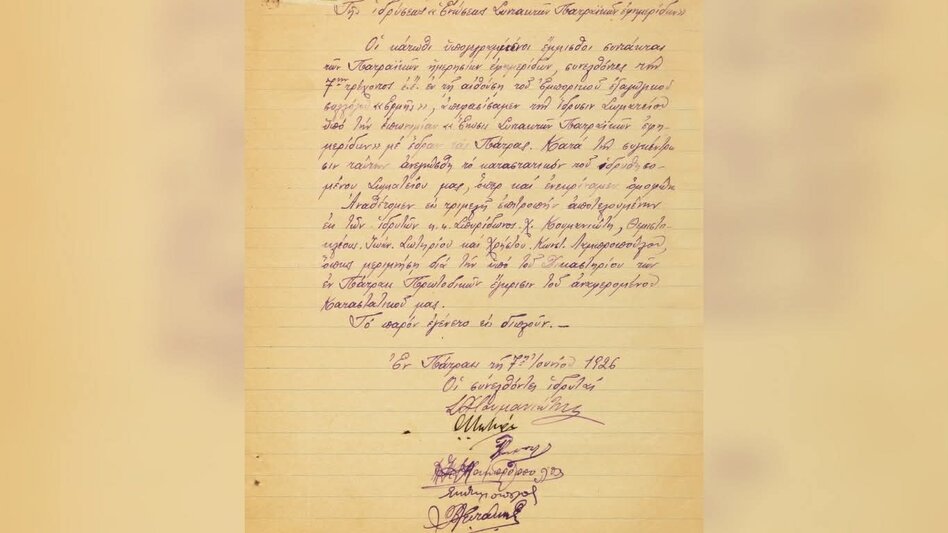 Τῆς ἱδρύσεως «Ἑνώσεως Συντακτῶν Πατραϊκῶν ἐφημερίδων»
Οἱ κάτωθι ὑπογεγραμμένοι ἔμμισθοι συντάκται
τῶν Πατραϊκῶν ἡμερησίων ἐφημερίδων, συνελθόντες τὴν
7ην τρέχοντος ἐ.ἔ. ἐν τῇ αἰθούσῃ τοῦ Ἐμπορικοῦ ὑπαλληλικοῦ
συλλόγου «Ἑρμῆς», ἀπεφασίσαμεν τὴν ἵδρυσιν Σωματείου
ὑπὸ τὴν ἐπωνυμίαν «Ἕνωσις Συντακτῶν Πατραϊκῶν ἐφη-
μερίδων» μὲ ἕδραν τὰς Πάτρας. Κατὰ τὴν συγκέντρω
σιν ταύτην ἀνεγνώσθη τὸ καταστατικὸν τοῦ ἱδρυθησο-
μένου Σωματείου μας, ὅπερ καὶ ἐνεκρίναμεν
Ἀναθέτομεν εἰς τριμελῆ ἐπιτροπὴν ἀποτελουμένην
ἐκ τῶν ἱδρυτῶν κ.κ. Σπυρίδωνος Χ. Κουμανιώτη, Θεμιστο-
κλέους Ἰωάν. Σωτηρίου καὶ Χρήστου Κωνστ. Λαμπροπούλου,
ὅπως μεριμνήσῃ διὰ τὴν ὑπὸ τοῦ Δικαστηρίου τῶν
ἐν Πάτραις Πρωτοδικῶν ἔγκρισιν τοῦ ἀναφερομένου
Καταστατικοῦ μας.
Τὸ παρὸν ἐγένετο εἰς διπλοῦν. —
Ἐν Πάτραις τῇ 7ῃ Ἰουνίου 1926
Οἱ συνελθόντες ἱδρυταί
Σ. Χ. Κουμανιώτης